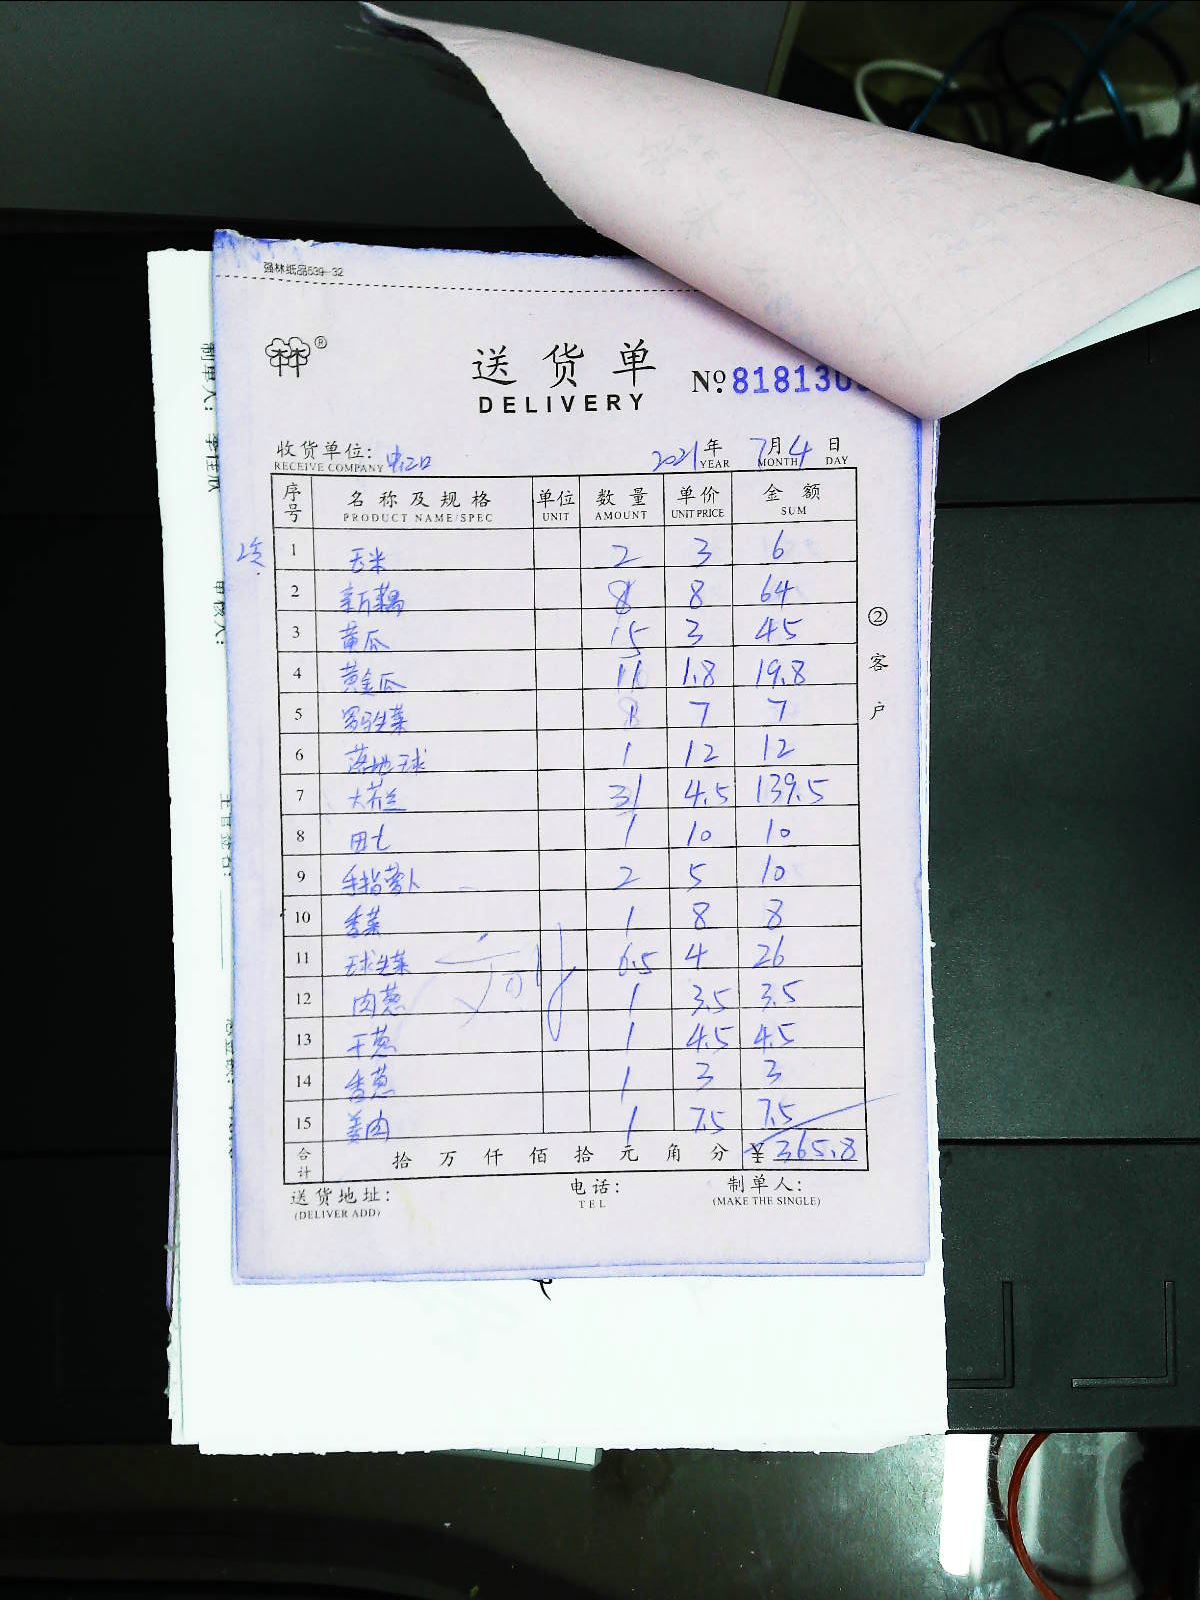 强林纸品639-32
送货单
DELIVERY
№ 818130
收货单位:
RECEIVE COMPANY
2021 年 7 月 4 日
YEAR MONTH DAY
序号 名称及规格 单位 数量 单价 金额
PRODUCT NAME/SPEC UNIT AMOUNT UNIT PRICE SUM
1 玉米 2 3 6
2 新藕 8 8 64
3 黄瓜 15 3 45
4 黄金瓜 11 1.8 19.8
5 罗马生菜 1 7 7
6 1 12 12
7 大芥兰 31 4.5 139.5
8 田七 1 10 10
9 手指萝卜 2 5 10
10 香菜 1 8 8
11 球生菜 6.5 4 26
12 肉葱 1 3.5 3.5
13 干葱 1 4.5 4.5
14 香葱 1 3 3
15 姜肉 1 7.5 7.5
合计 拾 万 仟 佰 拾 元 角 分 ¥ 365.8
送货地址: 电话: 制单人:
(DELIVER ADD) TEL (MAKE THE SINGLE)
②客户
制单人: